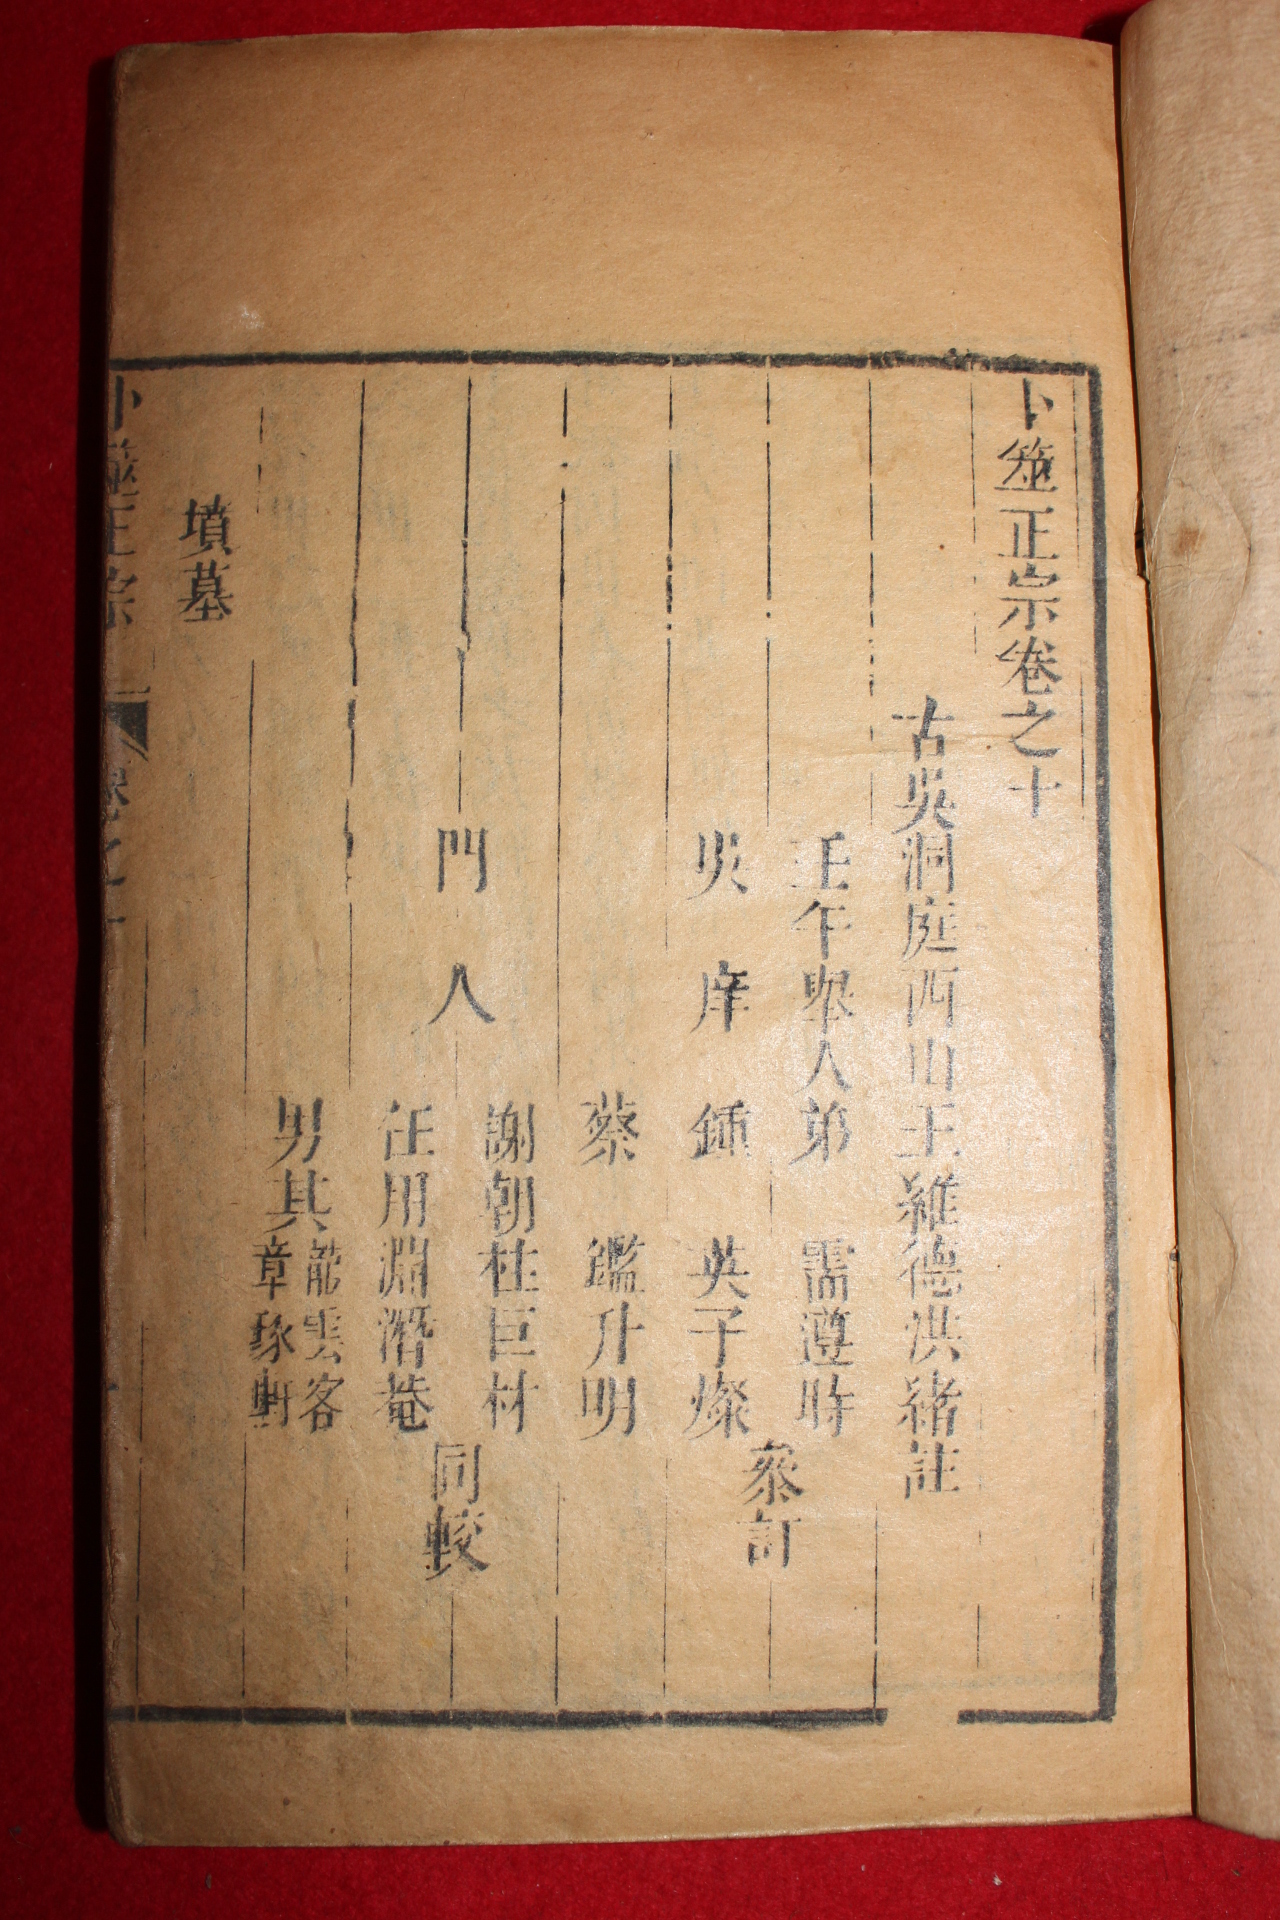 卜筮正宗卷之十
古吳洞庭西山王維德洪緒註
壬午舉人弟 需遵時
吳庠 鍾 英子燦
叅訂
蔡 鑑升明
門人
謝朝柱巨材
汪用淵潛菴
同較
男其
龍雲客
章琢軒
墳墓
卜筮正宗 卷之十